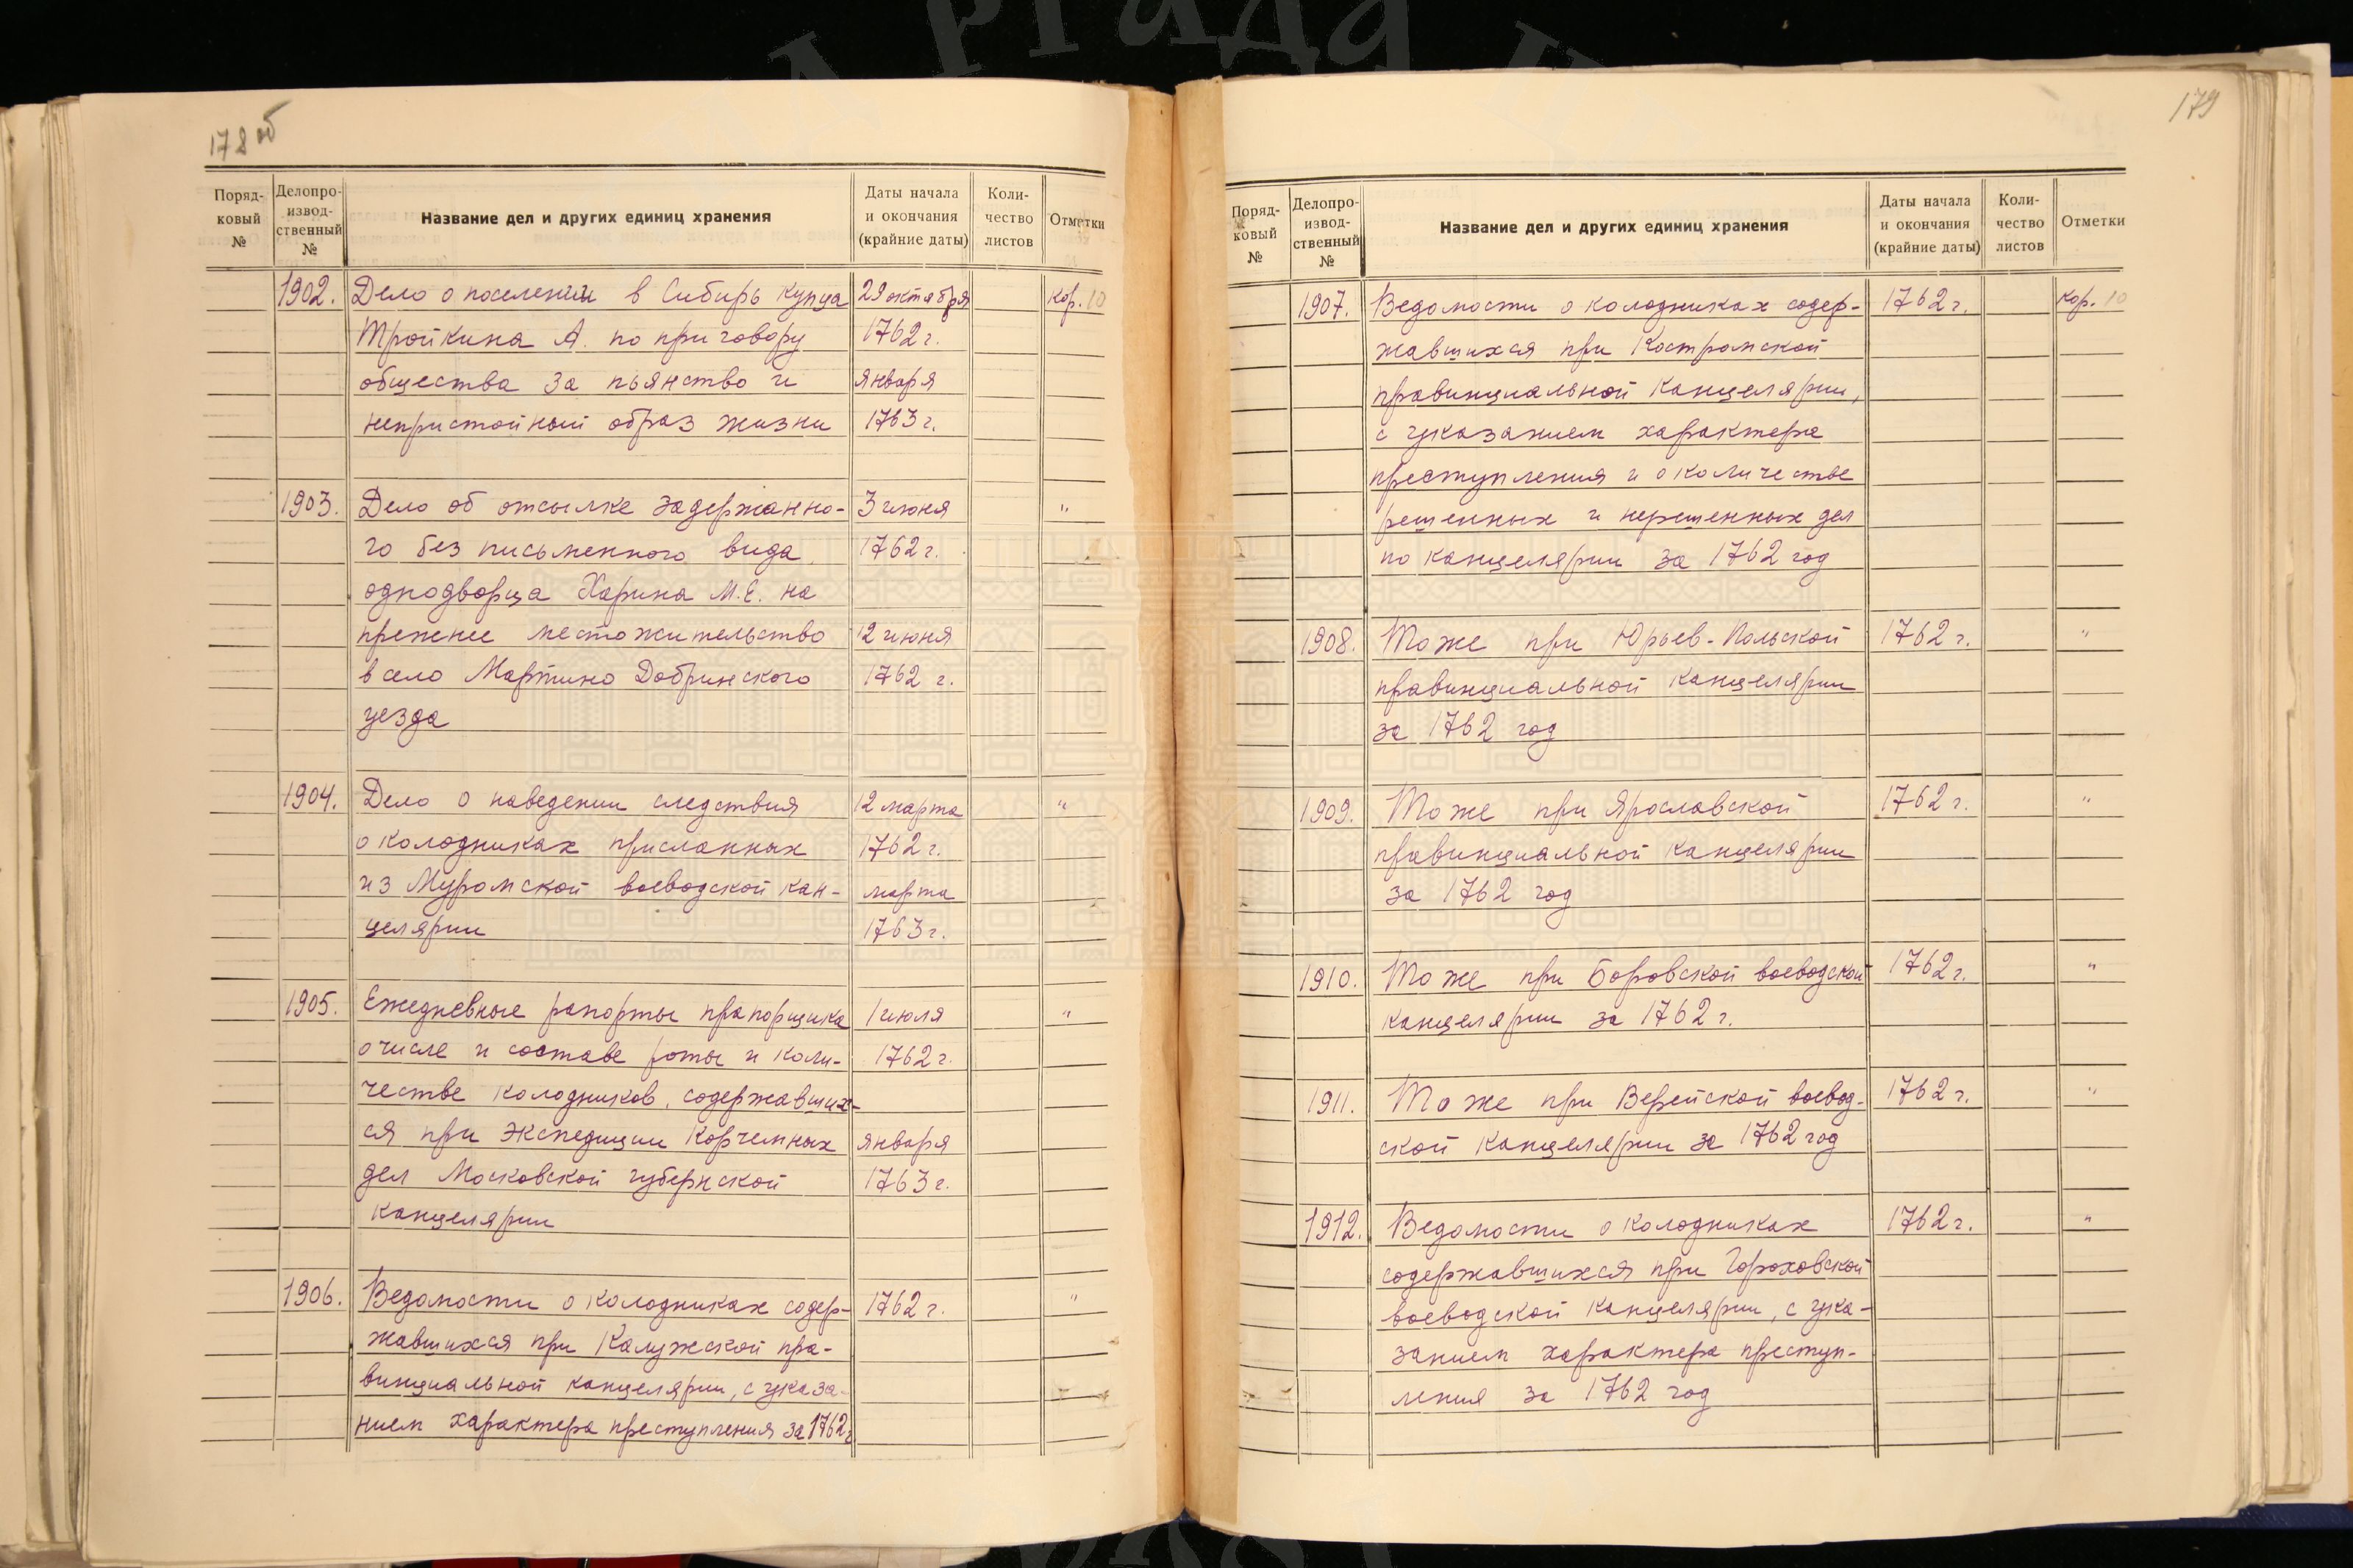 178 об
Поряд-
ковый
№
Делопро-
извод-
ственный
№
Название дел и других единиц хранения
Даты начала
и окончания
(крайние даты)
Коли-
чество
листов
Отметки
1902. Дело о поселении в Сибирь купца 29 октября кор. 10
Тройкина А. по приговору 1762 г.
общества за пьянство и января
непристойный образ жизни 1763 г.
1903. Дело об отсылке задержанно- 3 июня "
го без письменного вида 1762 г.
однодворца Харина М.Е. на
прежнее местожительство 12 июня
в село Мартино Добринского 1762 г.
уезда
1904. Дело о наведении следствия 12 марта "
о колодниках присланных 1762 г.
из Муромской воеводской кан- марта
целярии 1763 г.
1905. Ежедневные рапорты прапорщика 1 июля "
о числе и составе роты и коли- 1762 г.
честве колодников, содержавших-
ся при Экспедиции Корчемных января
дел Московской губернской 1763 г.
канцелярии
1906. Ведомости о колодниках содер- 1762 г. "
жавшихся при Калужской пра-
винциальной канцелярии, с указа-
нием характера преступления за 1762 г
179
Поряд-
ковый
№
Делопро-
извод-
ственный
№
Название дел и других единиц хранения
Даты начала
и окончания
(крайние даты)
Коли-
чество
листов
Отметки
1907. Ведомости о колодниках содер- 1762 г. кор. 10
жавшихся при Костромской
правинциальной канцелярии,
с указанием характера
преступления и о количестве
решенных и нерешенных дел
по канцелярии за 1762 год
1908. Тоже при Юрьев-Польской 1762 г. "
правинциальной канцелярии
за 1762 год
1909. Тоже при Ярославской 1762 г. "
правинциальной канцелярии
за 1762 год
1910. Тоже при Боровской воеводской 1762 г. "
канцелярии за 1762 г.
1911. Тоже при Верейской воевод- 1762 г. "
ской канцелярии за 1762 год
1912. Ведомости о колодниках 1762 г. "
содержавшихся при Гороховской
воеводской канцелярии, с ука-
занием характера преступ-
ления за 1762 год